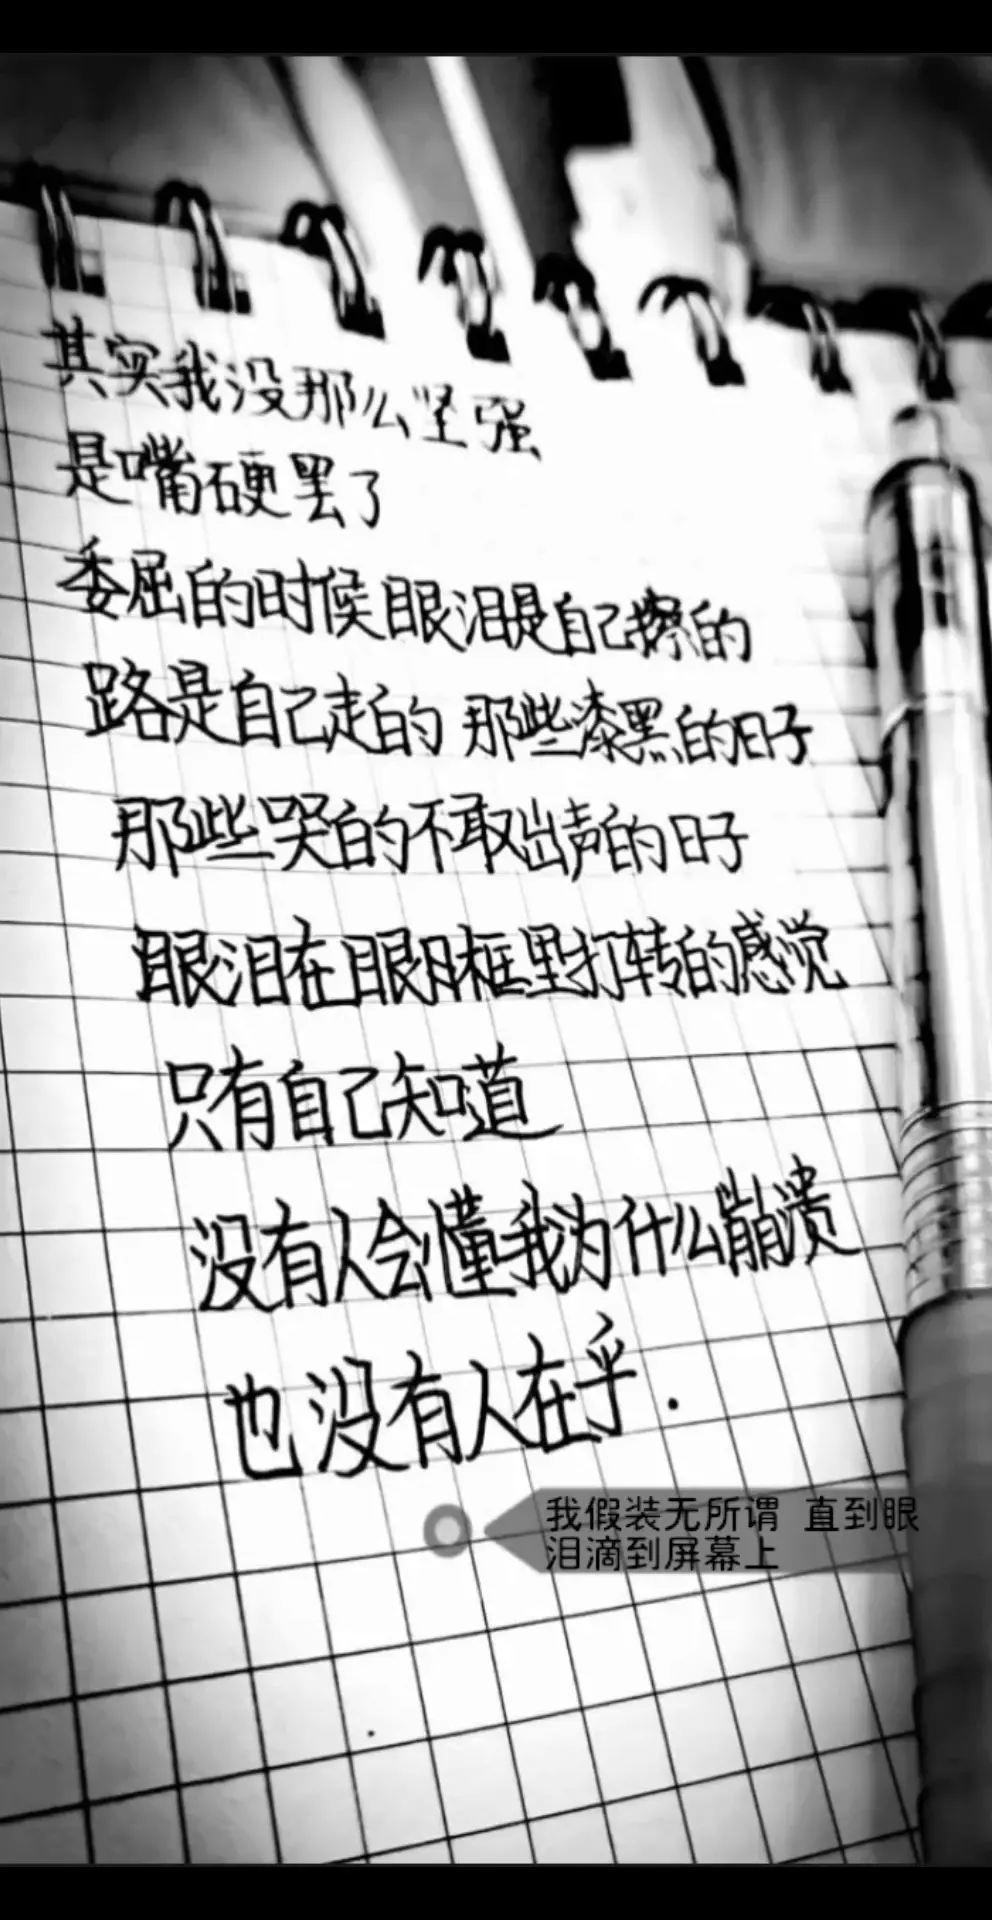 其实我没那么坚强
是嘴硬罢了
委屈的时候眼泪是自己擦的
路是自己走的 那些漆黑的日子
那些哭的不敢出声的日子
眼泪在眼眶里打转的感觉
只有自己知道
没有人会懂我为什么崩溃
也没有人在乎.
我假装无所谓 直到眼
泪滴到屏幕上